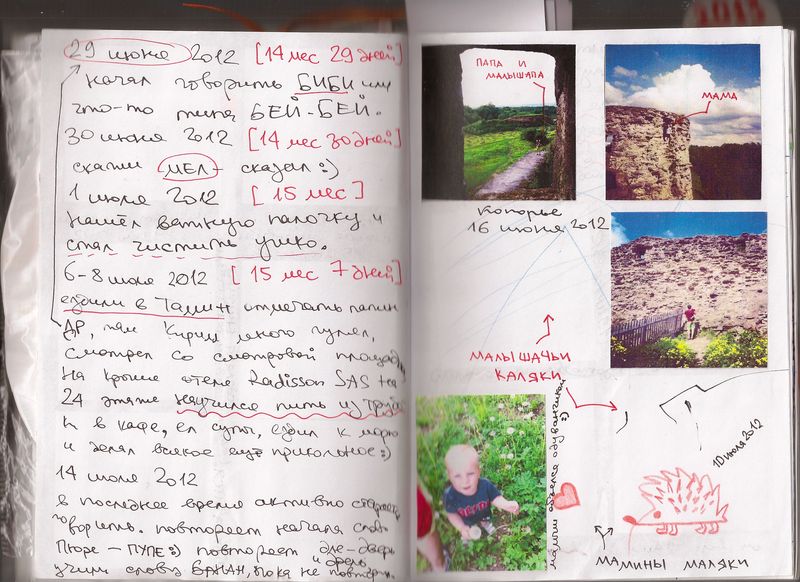 29 июня 2012 [14 мес 29 дней]
начал говорить БИБИ или
что-то типа БЕЙ-БЕЙ.
30 июня 2012 [14 мес 30 дней]
скажи МЕЛ - сказал :)
1 июля 2012 [15 мес]
нашёл ватную палочку и
стал чистить ушко.
6-8 июля 2012 [15 мес 7 дней]
ездили в Талин отмечать папин
ДР, там Кирим много гулял,
смотрел со смотровой площад
на крыше отеля Radisson SAS на
24 этаже научился пить из труб
и в кафе, ел супы, ездил к морю
и делал всякое ещё прикольное :)
14 июля 2012
в последнее время активно старается
говорить. повторяет начала слов
Пюре - ПУПЕ :) повторяет
учим слово БАНАН, пока не повторил.
ПАПА И
МАЛЫШАПА
МАМА
Копорье
16 июня 2012
МАЛЫШАЧЬИ
КАЛЯКИ
объелся одуванчиков :)
10 июля 2012
МАМИНЫ МАЛЯКИ